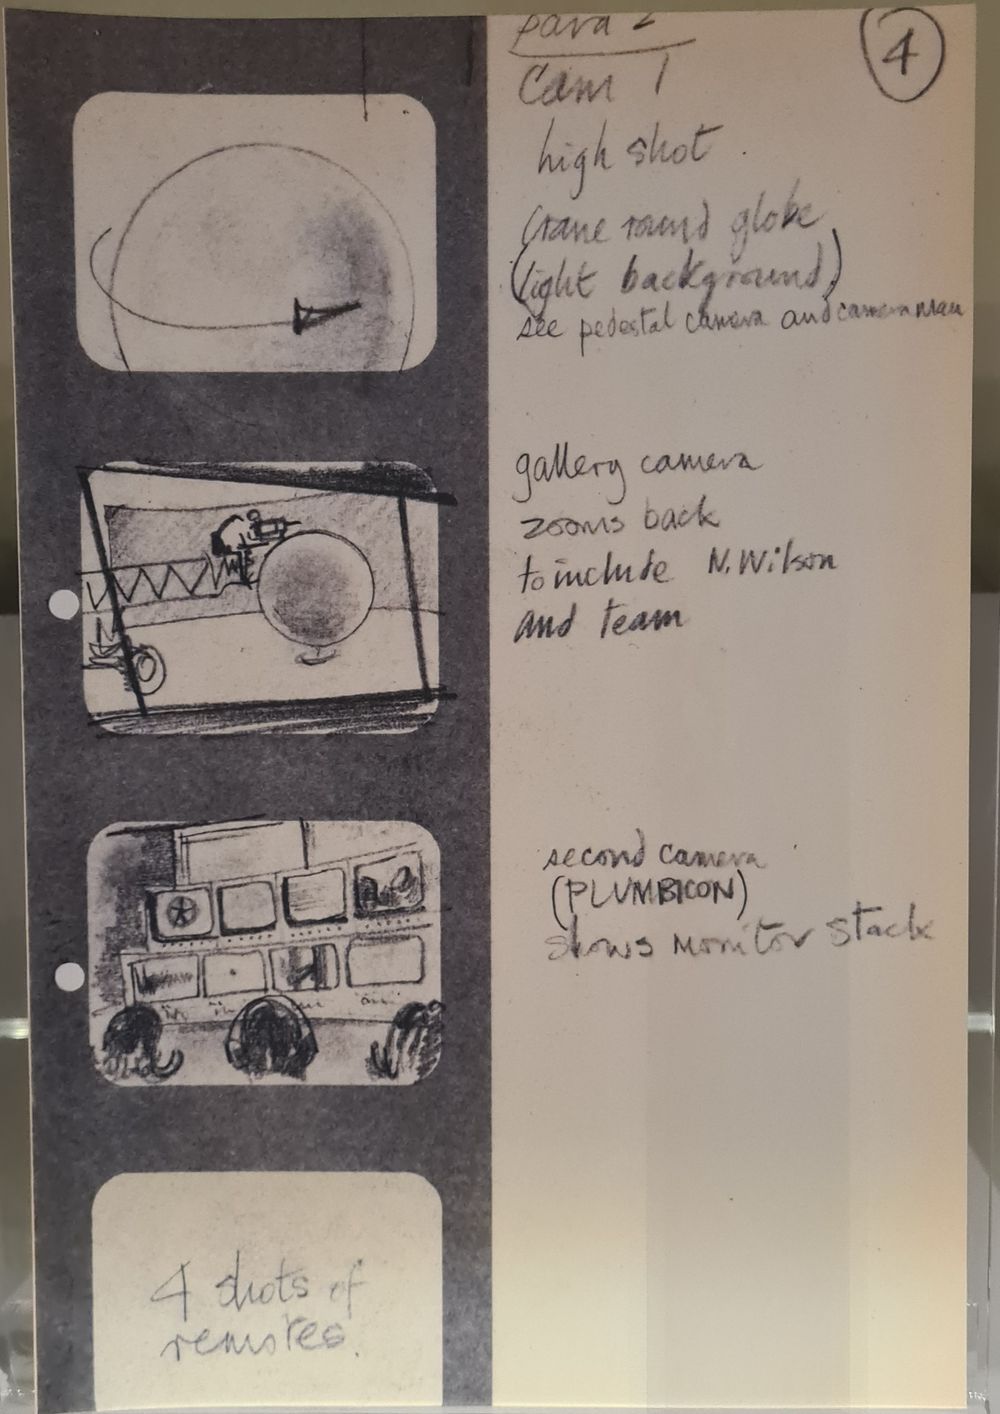 para 2
4
Cam 1
high shot
crane round globe
(light background)
see pedestal camera and cameraman
gallery camera
zooms back
to include N. Wilson
and team
second camera
(PLUMBICON)
shows monitor stack
4 shots of
remotes.